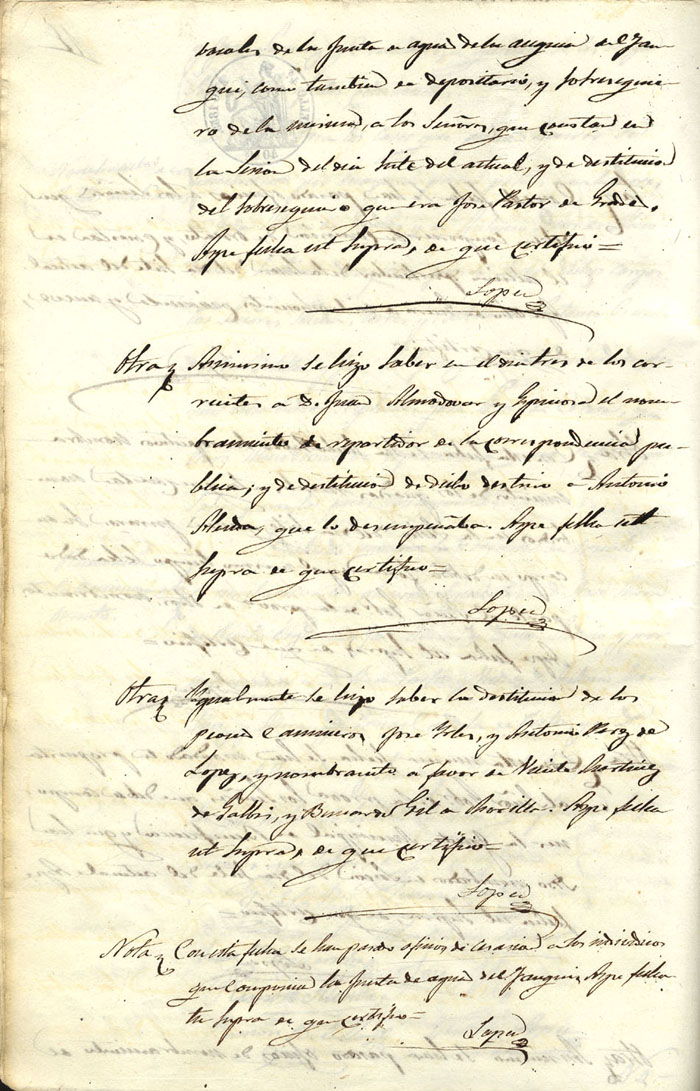 vocales de la Junta de agua de la acequia del Fau-
qui, como tambien de depositario, y sobreseguie-
ro de la misma, a los Señores, que constan en
la Sesion del dia siete del actual, y de destitucion
del sobreseguiero que era Jose Pastor de
Aspe fecha ut supra, de que certifico=
Lopez
Otra Asimismo se hizo saber en el dia tres de los cor-
rientes á D. Juan Almodovar y Espinosa el nom-
bramiento de repartidor de la correspondencia pu-
blica; y de destitucion de dicho destino á Antonio
que lo desempeñaba. Aspe fecha ut
supra de que certifico=
Lopez
Otra Ygualmente se hizo saber la destitucion de los
peones Camineros Jose y Antonio Perez de
Lopez, y nombramto á favor de Vicente Martinez
de y Bernardo Gil de Aspe fecha
ut supra, de que certifico=
Lopez
Nota Con esta fecha se han pasado oficios de cesacion á los individuos
que componian la Junta de agua del Fauqui, Aspe fecha
ut supra de que certifico=
Lopez